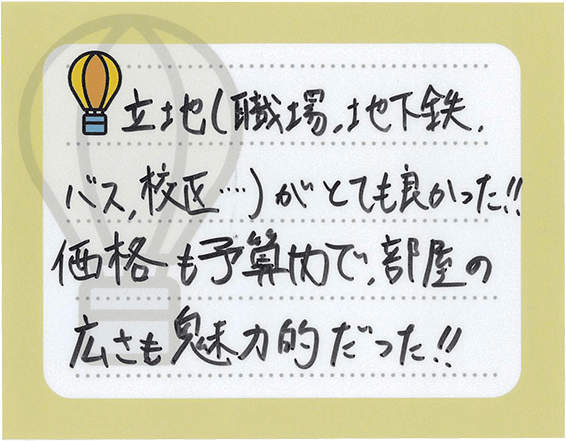 立地(職場,地下鉄,
バス,校区‥‥)がとても良かった!!
価格も予算内で,部屋の
広さも魅力的だった!!